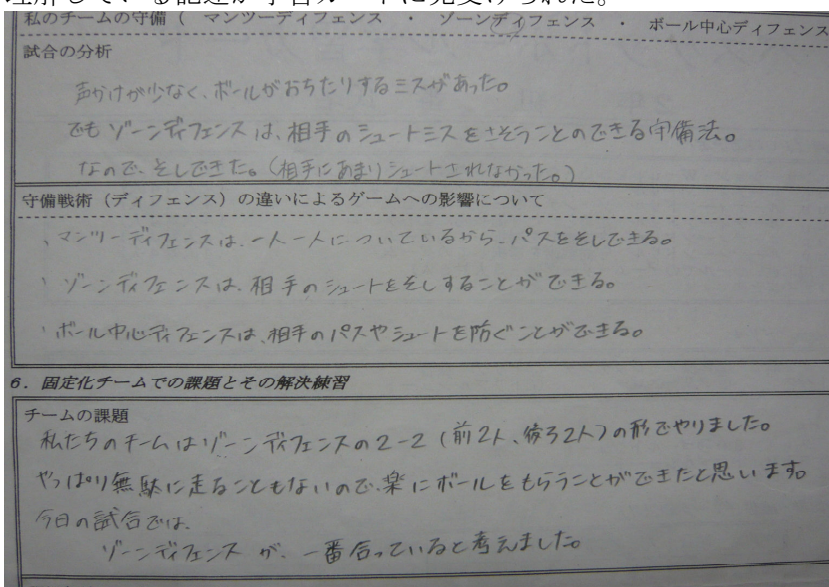 理解している記述が学習カードに見受けられた。
私のチームの守備（ マンツーディフェンス ・ ゾーンディフェンス ・ ボール中心ディフェンス
試合の分析
声かけが少なく、ボールがおちたりするミスがあった。
でもゾーンディフェンスは、相手のシュートミスをさそうことのできる守備法。
なので、そしできた。(相手にあまりシュートされなかった。)
守備戦術（ディフェンス）の違いによるゲームへの影響について
、マンツーディフェンスは、一人一人についているから、パスをそしできる。
、ゾーンディフェンスは、相手のシュートをそしすることができる。
、ボール中心ディフェンスは、相手のパスやシュートを防ぐことができる。
6．固定化チームでの課題とその解決練習
チームの課題
私たちのチームはゾーンディフェンスの2-2（前2人、後ろ2人）の形でやりました。
やっぱり無駄に走ることもないので、楽にボールをもらうことができたと思います。
今日の試合では、
ゾーンディフェンスが、一番合っていると考えました。